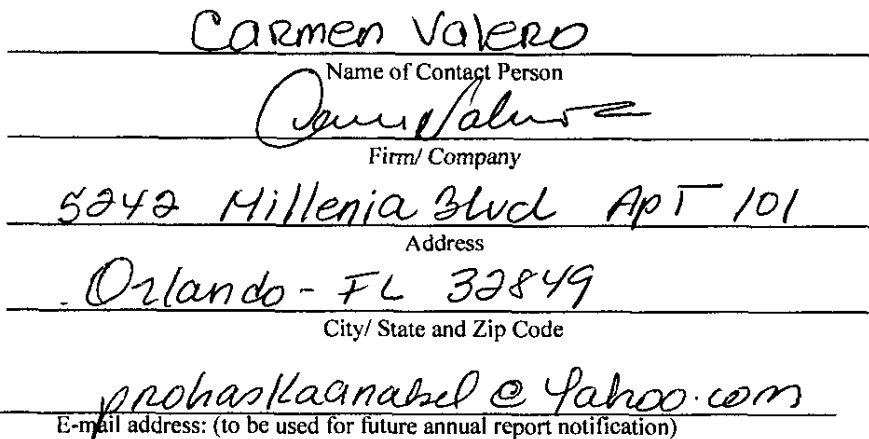 Carmen Valero
Name of Contact Person
Firm/ Company
5242 Millenia Blvd Apt 101
Address
Orlando - FL 32849
City/ State and Zip Code
prohaskaanabel@yahoo.com
E-mail address: (to be used for future annual report notification)